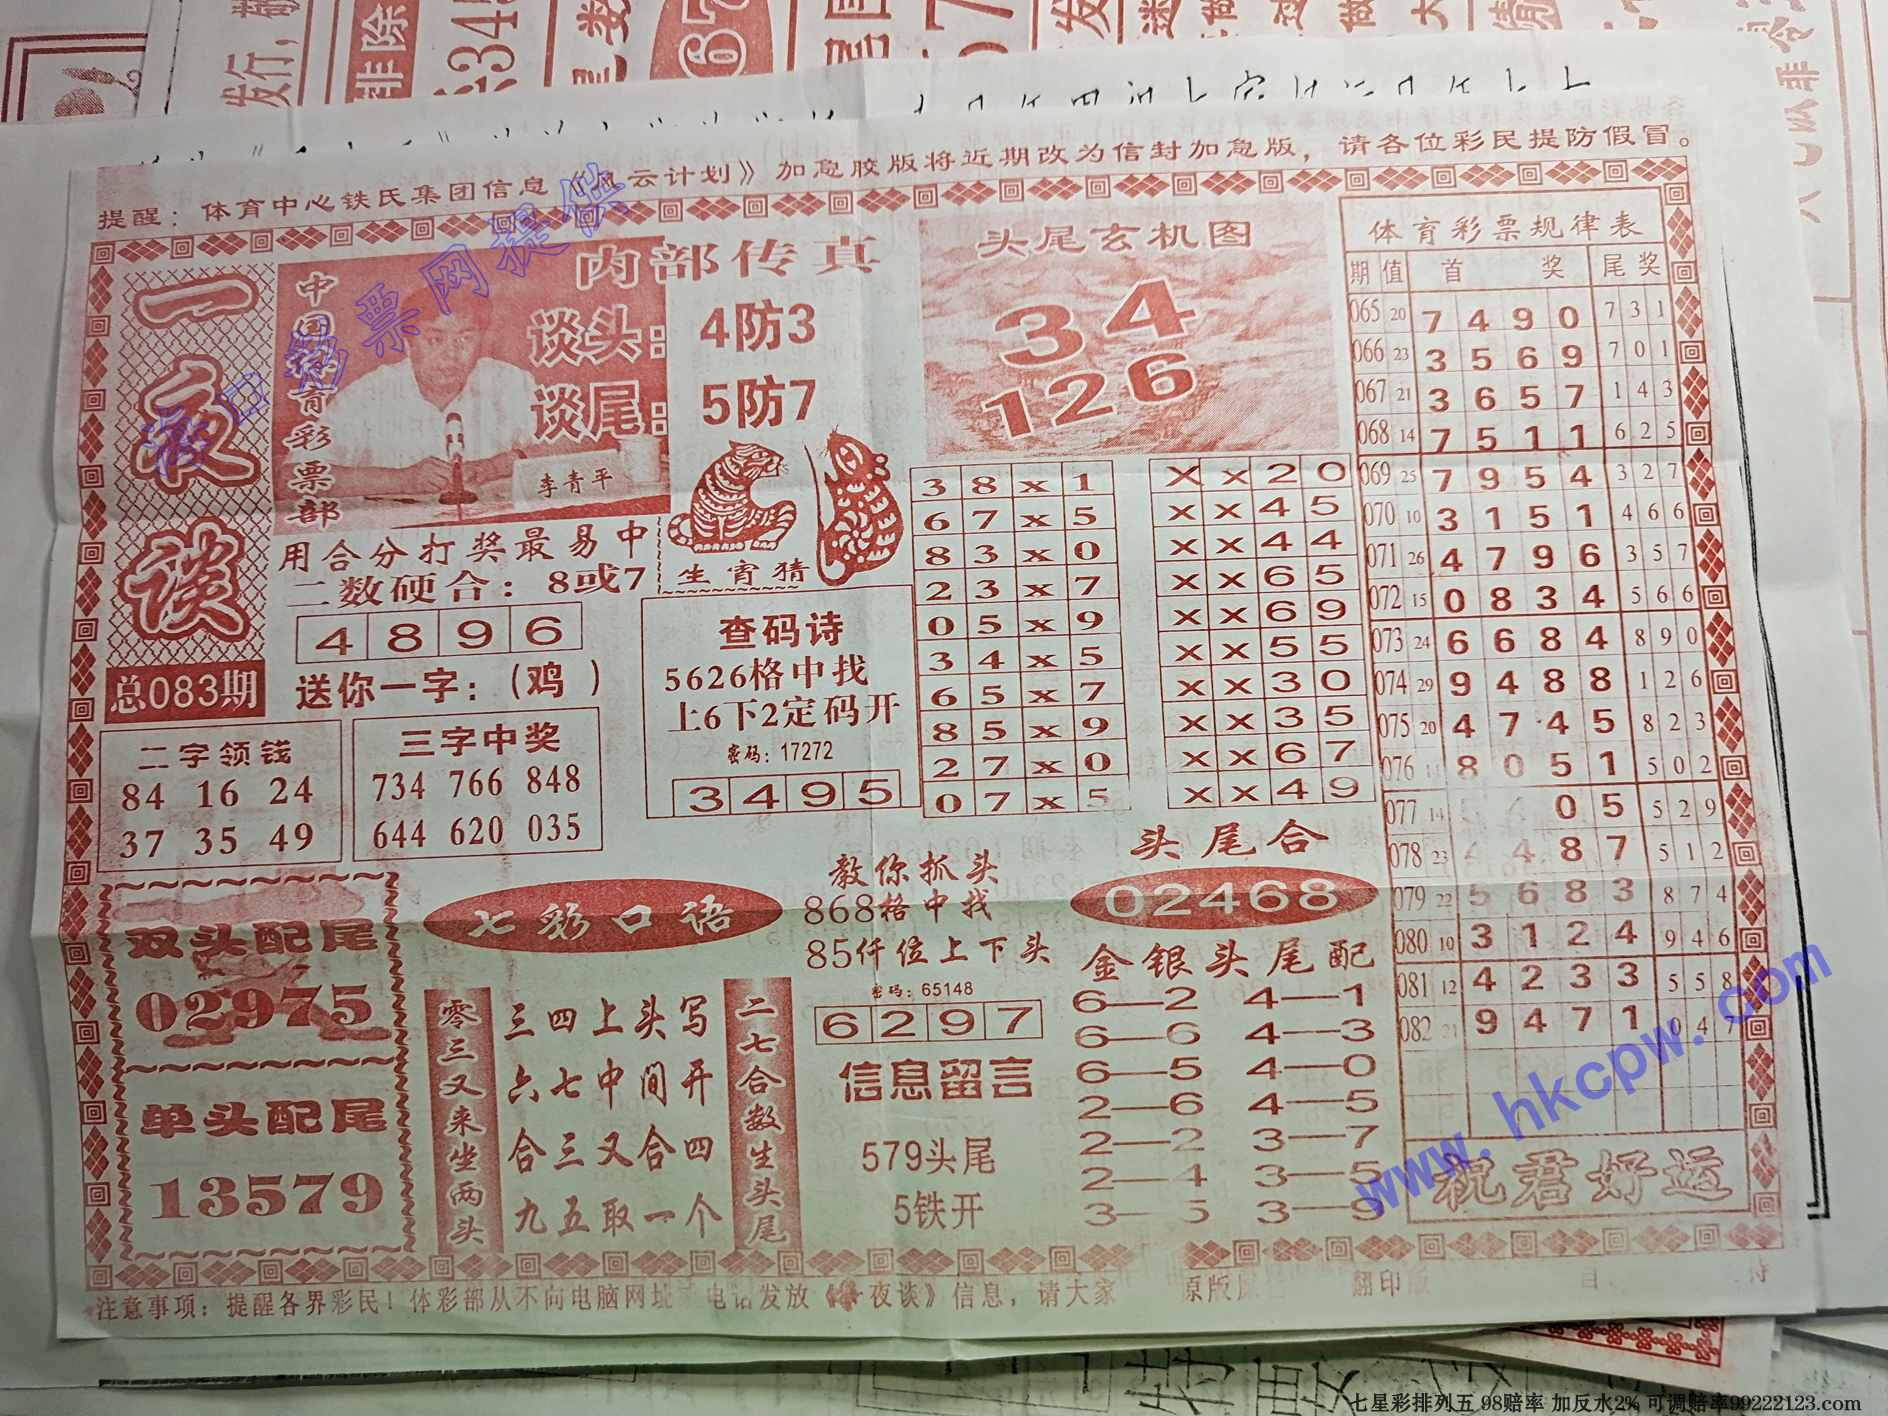 提醒：体育中心铁氏集团信息《风云计划》加急胶版将近期改为信封加急版，请各位彩民提防假冒。
一夜谈
总083期
中国体育彩票部
内部传真
谈头：4防3
谈尾：5防7
李青平
生宵猜
用合分打奖最易中
二数硬合：8或7
4 8 9 6
送你一字：（鸡）
二字领钱
84 16 24
37 35 49
三字中奖
734 766 848
644 620 035
查码诗
5626格中找
上6下2定码开
密码：17272
3 4 9 5
头尾玄机图
34
126
3 8 x 1
6 7 x 5
8 3 x 0
2 3 x 7
0 5 x 9
3 4 x 5
6 5 x 7
8 5 x 9
2 7 x 0
0 7 x 5
X x 2 0
x x 4 5
x x 4 4
x x 6 5
x x 6 9
x x 5 5
x x 3 0
x x 3 5
x x 6 7
x x 4 9
双头配尾
02975
单头配尾
13579
七彩口语
零三又来坐两头
三四上头写
六七中间开
合三又合四
九五取一个
二七合数生头尾
教你抓头
868格中找
85仟位上下头
密码：65148
6 2 9 7
信息留言
579头尾
5铁开
头尾合
02468
金银头尾配
6—2 4—1
6—6 4—3
6—5 4—0
2—6 4—5
2—2 3—7
2—4 3—5
3—5 3—9
体育彩票规律表
期 值 首奖 尾奖
065 20 7 4 9 0 7 3 1
066 23 3 5 6 9 7 0 1
067 21 3 6 5 7 1 4 3
068 14 7 5 1 1 6 2 5
069 25 7 9 5 4 3 2 7
070 10 3 1 5 1 4 6 6
071 26 4 7 9 6 3 5 7
072 15 0 8 3 4 5 6 6
073 24 6 6 8 4 8 9 0
074 29 9 4 8 8 1 2 6
075 20 4 7 4 5 8 2 3
076 14 8 0 5 1 5 0 2
077 14 0 5 5 2 9
078 23 4 4 8 7 5 1 2
079 22 5 6 8 3 8 7 4
080 10 3 1 2 4 9 4 6
081 12 4 2 3 3 5 5 8
082 21 9 4 7 1 0 4 7
祝君好运
注意事项：提醒各界彩民！体彩部从不向电脑网址 电话发放《一夜谈》信息，请大家 原版 翻印版
www.hkcpw.com
七星彩排列五 98赔率 加反水2% 可调赔率99222123.com